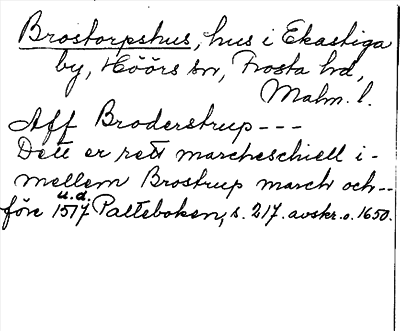 Brostorpshus, hus i Ekastiga
by, Höörs sn, Frosta hd,
Malm. l.
Aff Broderstrup ---
Dett er rett marcheschiell i-
mellem Brostrup march och--
u.d.
före 1517 Palteboken, s. 217. avskr. o. 1650.